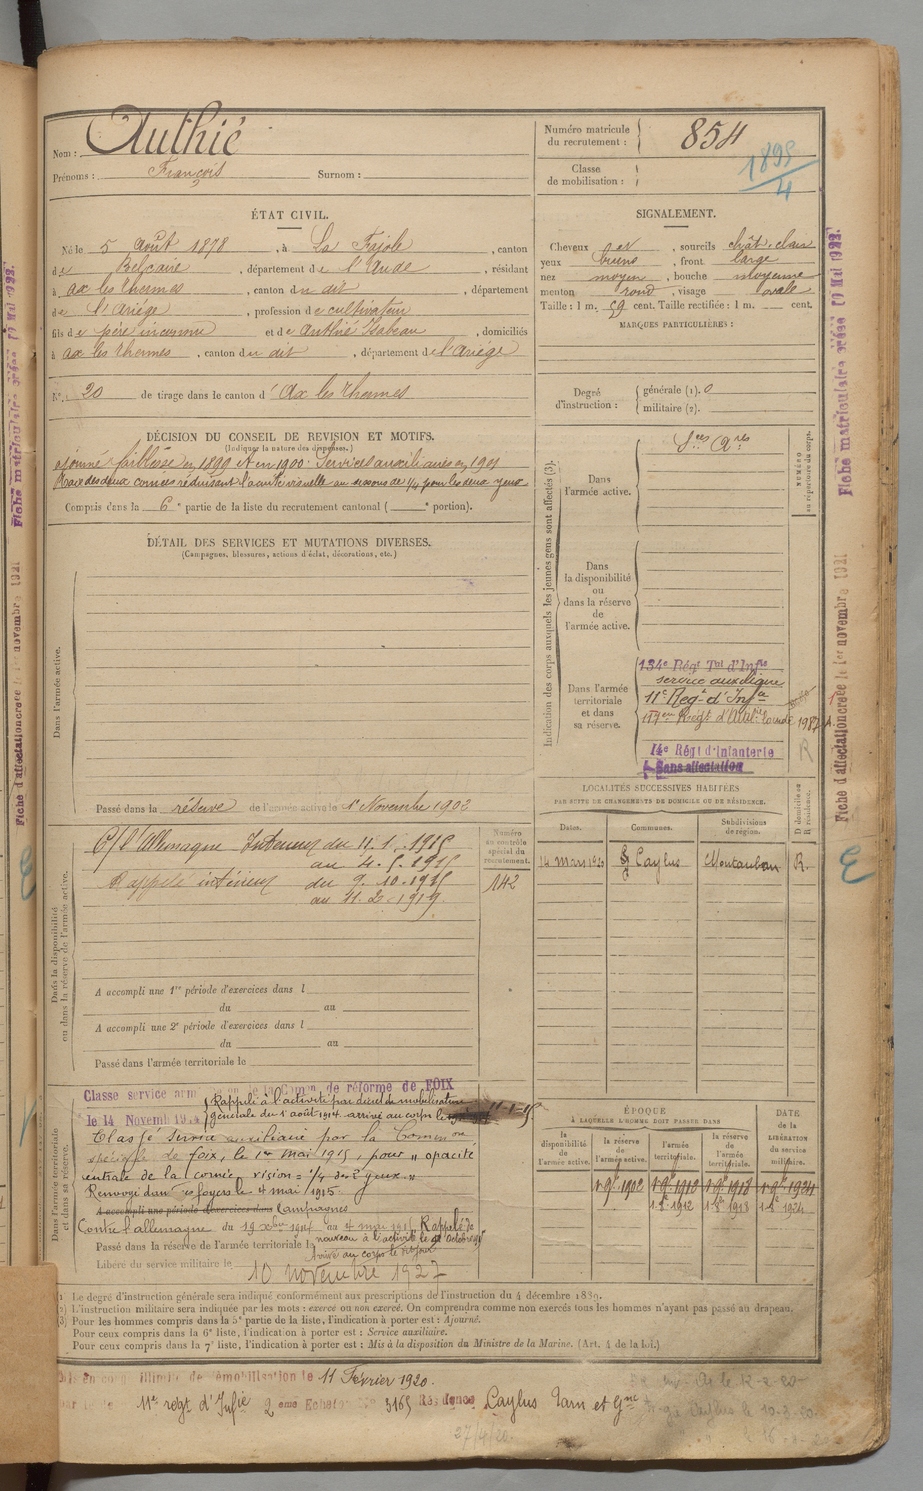 Nom : Authié
Prénoms : François Surnom :
Numéro matricule du recrutement : 854
Classe de mobilisation :
1895/4
ÉTAT CIVIL.
Né le 5 août 1878, à La Fajole, canton
de Belcaire, département de l'Aude, résidant
à ax les thermes, canton du dit, département
de l'Ariège, profession de cultivateur
fils de père inconnu et de Authié Isabeau, domiciliés
à ax les thermes, canton du dit, département de l'ariège
N° 20 de tirage dans le canton d' Ax les thermes
SIGNALEMENT.
Cheveux et, sourcils chât. clair
yeux bruns, front large
nez moyen, bouche moyenne
menton rond, visage ovale
Taille : 1 m. 59 cent. Taille rectifiée : 1 m. cent.
MARQUES PARTICULIÈRES :
Degré d'instruction : générale (1). 0
militaire (2).
DÉCISION DU CONSEIL DE REVISION ET MOTIFS.
(Indiquer la nature des dispenses.)
ajourné faiblesse en 1899 et en 1900. Services auxiliaires en 1901
Taies des deux cornées réduisant l'acuité visuelle au dessous de 1/4 pour les deux yeux
Compris dans la 6e partie de la liste du recrutement cantonal ( e portion).
DÉTAIL DES SERVICES ET MUTATIONS DIVERSES.
(Campagnes, blessures, actions d'éclat, décorations, etc.)
Dans l'armée active.
Passé dans la réserve de l'armée active le 1er Novembre 1902
Indication des corps auxquels les jeunes gens sont affectés (3).
NUMÉRO au répertoire du corps.
Dans l'armée active.
Sces Ares
Dans la disponibilité ou dans la réserve de l'armée active.
Dans l'armée territoriale et dans sa réserve.
134e Régt Tal d'Infie
service auxiliaire
11e Regt d'Infie
Régt d'Artil.
14e Régt d'Infanterie
Sans affectation
Dans la disponibilité ou dans la réserve de l'armée active.
C/ l'Allemagne Intérieur du 11.1.1915
au 4.5.1915
Rappelé intérieur du 9.10.1915
au 11.2.1919
Numéro au contrôle spécial du recrutement.
142
A accompli une 1re période d'exercices dans l
du au
A accompli une 2e période d'exercices dans l
du au
Passé dans l'armée territoriale le
LOCALITÉS SUCCESSIVES HABITÉES
PAR SUITE DE CHANGEMENTS DE DOMICILE OU DE RÉSIDENCE.
Dates. Communes. Subdivisions de région. D domicile ou R résidence.
14 mars 1920 Caylus Montauban R.
Dans l'armée territoriale et dans sa réserve.
Classe service armé de réforme de FOIX
le 14 Novemb
Rappelé à l'activité par décret de mobilisation
générale du 1er août 1914 arrivé au corps le 11-1-15
Classé service auxiliaire par la Common
spéciale de foix, le 14 mai 1915, pour " opacité
centrale de la cornée vision = 1/4 des 2 yeux "
Renvoyé dans ses foyers le 4 mai 1915.
A accompli une période d'exercices dans Campagnes
Contre l'allemagne du 19 xbre 1914 au 4 mai 1915 Rappelé de
nouveau à l'activité le 9 octobre 1915
Passé dans la réserve de l'armée territoriale l
arrivé au corps le dit jour
Libéré du service militaire le 10 novembre 1927
ÉPOQUE À LAQUELLE L'HOMME DOIT PASSER DANS
DATE de la LIBÉRATION du service militaire.
la disponibilité de l'armée active. la réserve de l'armée active. l'armée territoriale. la réserve de l'armée territoriale.
1 9bre 1902 1 9bre 1912 1 9bre 1918 1 9bre 1924
1912 1918 1924
(1) Le degré d'instruction générale sera indiqué conformément aux prescriptions de l'instruction du 4 décembre 1889.
(2) L'instruction militaire sera indiquée par les mots : exercé ou non exercé. On comprendra comme non exercés tous les hommes n'ayant pas passé au drapeau.
(3) Pour les hommes compris dans la 5e partie de la liste, l'indication à porter est : Ajourné.
Pour ceux compris dans la 6e liste, l'indication à porter est : Service auxiliaire.
Pour ceux compris dans la 7e liste, l'indication à porter est : Mis à la disposition du Ministre de la Marine. (Art. 4 de la loi.)
Mis en congé illimité de démobilisation le 11 Février 1920.
par le 11e regt d'Infie 2eme Echelon No 3165 Résidence Caylus Tarn et Gne
27/4/20
Fiche matriculaire créée 17 Mai 1922.
Fiche d'affectation créée le 1er novembre 1921
Fiche matriculaire créée 17 Mai 1922.
Fiche d'affectation créée le 1er novembre 1921
E